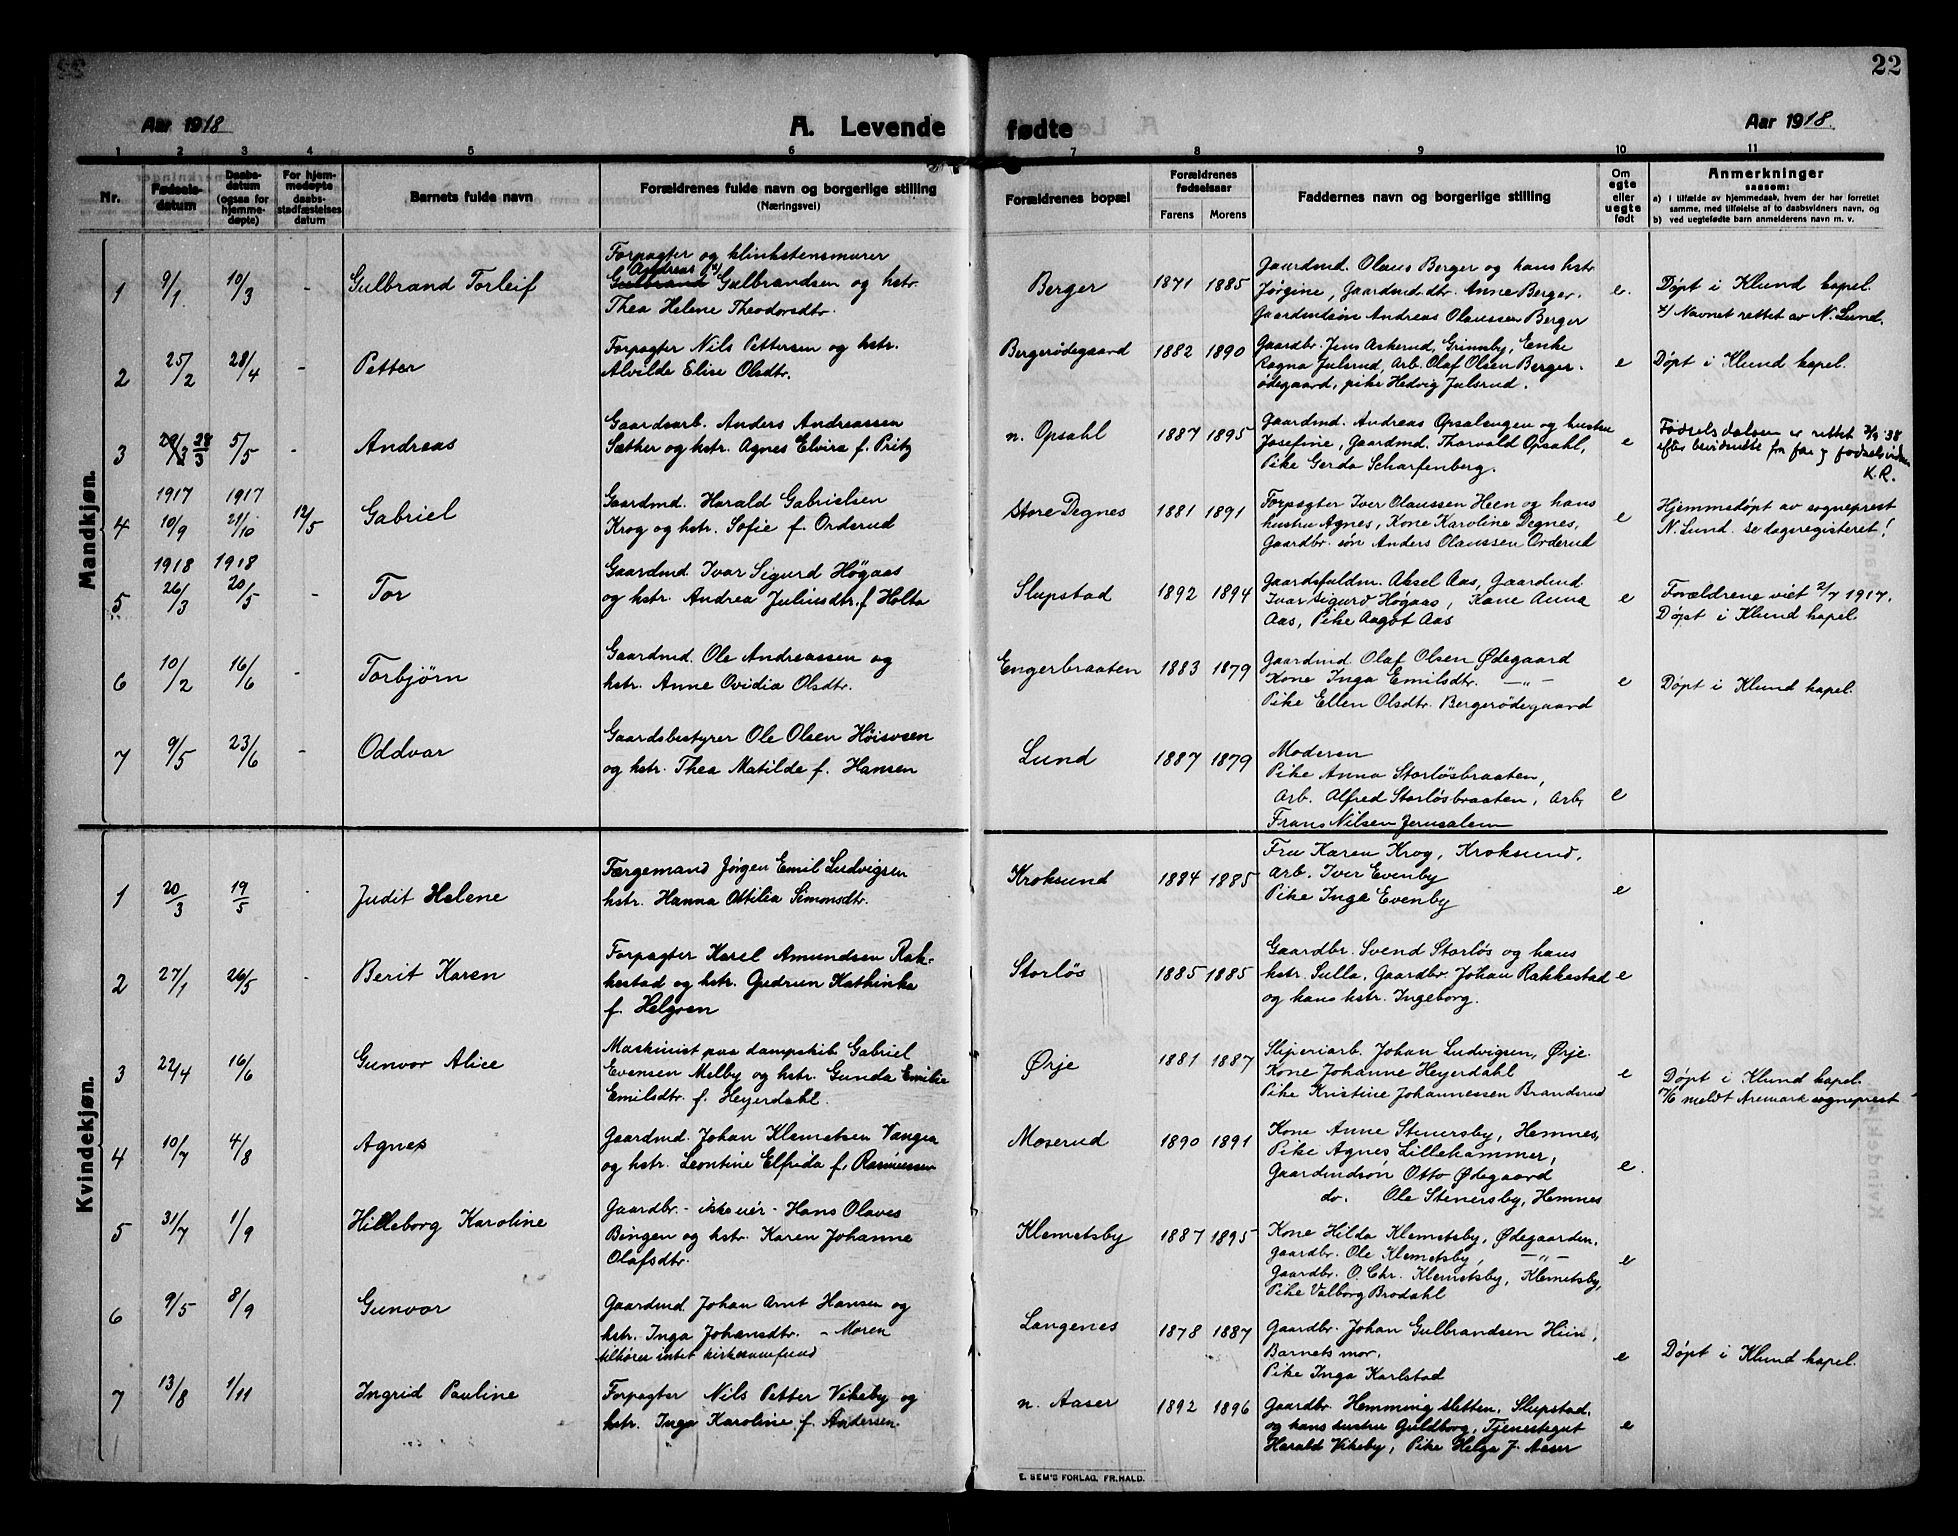 22
Aar 1918
A. Levende
fødte
Aar 1918.
1 2 3 4 5 6 7 8 9 10 11
Nr.
Fødsels-
datum
Daabs-
datum
(ogsaa for
hjemme-
døpte)
For hjem-
medøpte
daabs-
stadfæstelses
datum
Barnets fulde navn
Forældrenes fulde navn og borgerlige stilling
(Næringsvei)
Forældrenes bopæl
Forældrenes
fødselsaar
Farens Morens
Faddernes navn og borgerlige stilling
Om
egte
eller
uegte
født
Anmerkninger
saasom:
a) i tilfælde av hjemmedaab, hvem der har forrettet
samme, med tilføielse af to daabsvidners navn, og
b) ved uegtefødte barn anmelderens navn m. v.
Mandkjøn.
1 9/1 10/3 - Gulbrand Torleif
Forpagter og klinkstensmurer
Andreas x)
Gulbrand Gulbrandsen og hstr.
Thea Helene Theodorsdtr.
Berger 1871 1885
Gaardmd. Olaus Berger og hans hstr.
Jørgine, Gaardmd.dtr. Anne Berger.
Gaardmdsøn Andreas Olaussen Berger
e.
Døpt i Klund kapel.
x) Navnet rettet av N. Lund.
2 25/2 28/4 - Petter
Forpagter Nils Pettersen og hstr.
Alvilde Elise Olsdtr.
Bergerødegaard 1882 1890
Gaardbr. Jens Askerud, Grimsby, Enke
Ragna Julsrud, Arb. Olaf Olsen Berger-
ødegaard, pike Hedvig Julsrud.
e
Døpt i Klund kapel.
3 29/3 28/3 5/5 - Andreas
Gaardsarb. Anders Andreassen
Sæther og hstr. Agnes Elvira f. Pritz
n. Opsahl 1887 1895
Gaardmd. Andreas Opsalengen og hustru
Josefine, Gaardmd. Thorvald Opsahl,
Pike Gerda Scharfenberg.
e
Fødselsdatoen er rettet 3/9 38
efter fra far og
K.R.
1917 1917
4 10/9 21/10 12/5 Gabriel
Gaardmd. Harald Gabrielsen
Krog og hstr. Sofie f. Orderud
Store Degnes 1881 1891
Forpagter Iver Olaussen Heen og hans
hustru Agnes, Kone Karoline Degnes,
Gaardbr. søn Anders Olaussen Orderud
e
Hjemmedøpt av sogneprest
N. Lund. se dagregisteret!
1918 1918
5 26/3 20/5 - Tor
Gaardmd. Ivar Sigurd Høgaas
og hstr. Andrea Juliusdtr. f Holta
Slupstad 1892 1894
Gaardsfuldm. Aksel Aas, Gaardmd.
Ivar Sigurd Høgaas, Kone Anna
Aas, Pike Aagot Aas
e
Forældrene viet 2/7 1917.
Døpt i Klund kapel.
6 10/2 16/6 - Torbjørn
Gaardmd. Ole Andreassen og
hstr. Anne Ovidia Olsdtr.
Engerbraaten 1883 1879
Gaardmd. Olaf Olsen Ødegaard
Kone Inga Emilsdtr. —"—
Pike Ellen Olsdtr. Bergerødegaard
e
Døpt i Klund kapel.
7 9/5 23/6 - Oddvar
Gaardsbestyrer Ole Olsen Høisveen
og hstr. Thea Matilde f. Hansen
Lund 1887 1879
Moderen
Pike Anna Storløsbraaten,
Arb. Alfred Storløsbraaten, Arb.
Frans Nilsen Jerusalem
e
Kvindekjøn.
1 20/3 19/5 - Judit Helene
Færgemand Jørgen Emil Ludvigsen
hstr. Hanna Ottilia Simonsdtr.
Kroksund 1884 1885
Fru Karen Krog, Kroksund,
Arb. Iver Evenby
Pike Inga Evenby
e
2 27/1 26/5 - Berit Karen
Forpagter Karel Amundsen Rak-
kestad og hstr. Gudrun Kathinka
f. Helgren
Storløs 1885 1885
Gaardbr. Svend Storløs og hans
hstr. Sulla, Gaardbr. Johan Rakkestad
og hans hstr. Ingeborg.
e
3 22/4 16/6 Gunvor Alice
Maskinist paa dampskib. Gabriel
Evensen Melby og hstr. Gunda Emilie
Emilsdtr. f. Heyerdahl.
Ørje 1881 1887
Sliperiarb. Johan Ludvigsen, Ørje.
Kone Johanne Heyerdahl
Pike Kristine Johannessen Branderud
e
Døpt i Klund kapel.
meldt Aremark sogneprest
4 10/7 4/8 Agnes
Gaardmd. Johan Klemetsen Vangen
og hstr. Leontine Elfrida f. Rasmussen
Moserud 1890 1891
Kone Anne Stenersby, Hemnes,
Pike Agnes Lillehammer,
Gaardmdsøn Otto Ødegaard
do. Ole Stenersby, Hemnes
e.
5 31/7 1/9 Hilleborg Karoline
Gaardbr. - ikke eier - Hans Olaves
Bingen og hstr. Karen Johanne
Olafsdtr.
Klemetsby 1887 1895
Kone Hilda Klemetsby, Ødegaarden.
Gaardbr. Ole Klemetsby, —"—
Gaardbr. O. Chr. Klemetsby, Klemetsby,
Pike Valborg Brodahl
e
6 9/5 8/9 Gunvor
Gaardmd. Johan Arnt Hansen og
hstr. Inga Johansdtr. - Moren
tilhører intet kirkesamfund
Langenes 1878 1887
Gaardbr. Johan Gulbrandsen Hiin,
Barnets mor.
Pike Inga Karlstad
e
Døpt i Klund kapel.
7 13/8 1/11 Ingrid Pauline
Forpagter Nils Petter Vikeby og
hstr. Inga Karoline f. Andersen
n. Aaser 1892 1896
Gaardbr. Hemming Sletten, Slupstad,
og hans hustru Guldborg, Tjenestegut
Harald Vikeby, Pike Helga J. Aaser
e
E. SEM'S FORLAG, FR.HALD.